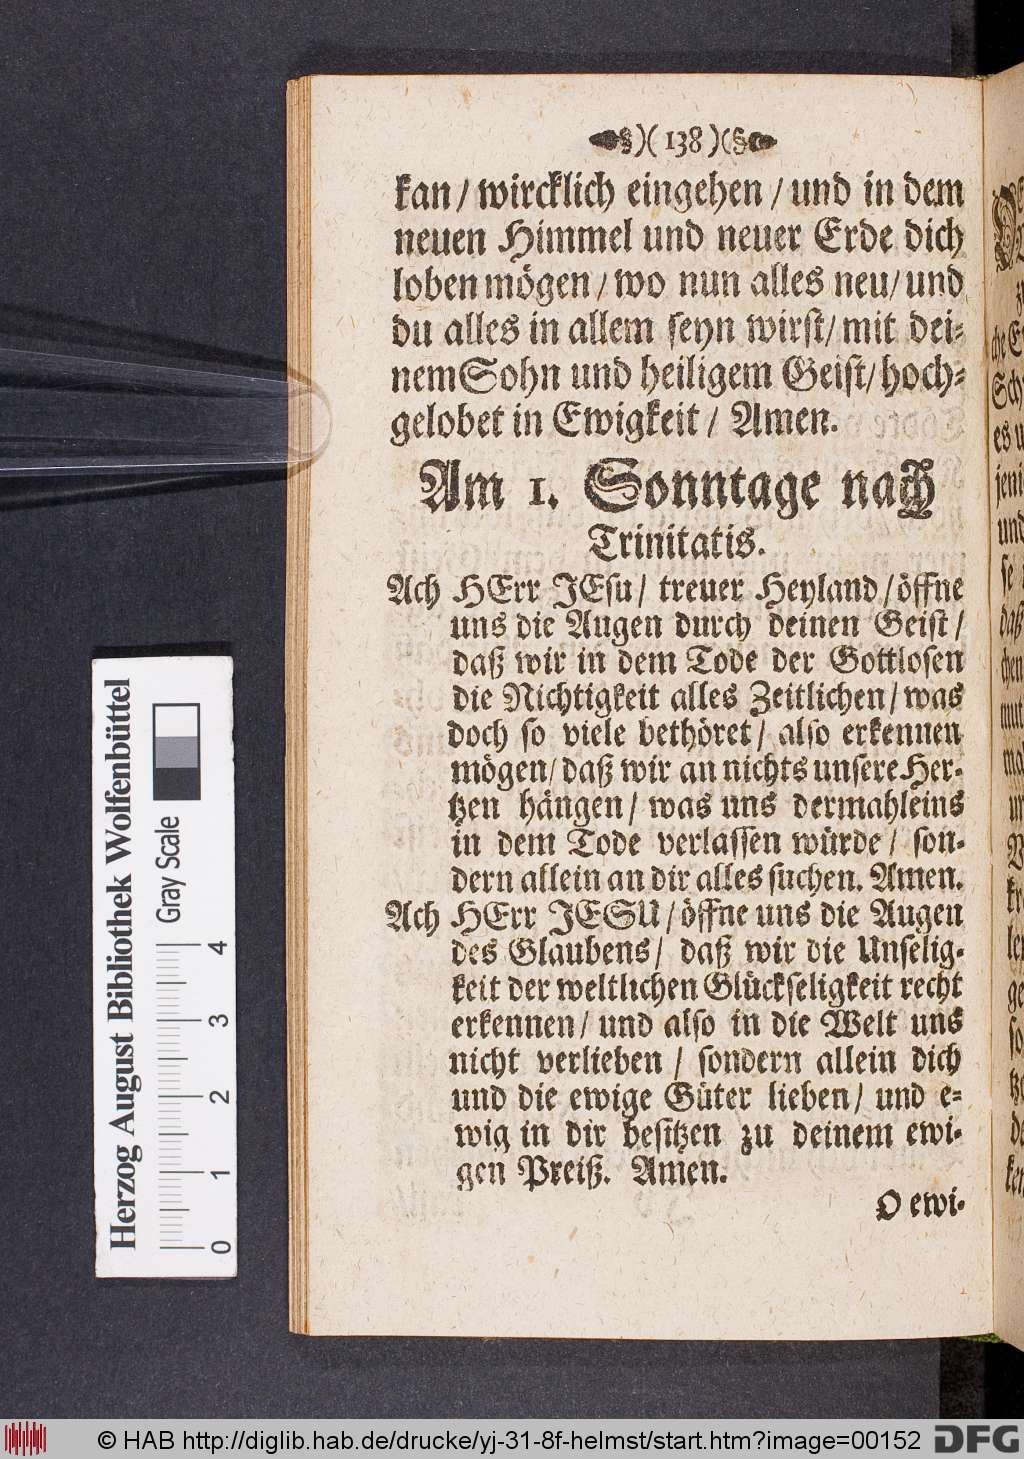 §)( 138 )(§
kan/ wircklich eingehen / und in dem
neuen Himmel und neuer Erde dich
loben mögen / wo nun alles neu/ und
du alles in allem seyn wirst/ mit dei-
nem Sohn und heiligem Geist/ hoch-
gelobet in Ewigkeit / Amen.
Am 1. Sonntage nach
Trinitatis.
Ach HErr JEsu/ treuer Heyland / öffne
uns die Augen durch deinen Geist /
daß wir in dem Tode der Gottlosen
die Nichtigkeit alles Zeitlichen/ was
doch so viele bethöret / also erkennen
mögen/ daß wir an nichts unsere Her-
tzen hängen / was uns dermahleins
in dem Tode verlassen würde / son-
dern allein an dir alles suchen. Amen.
Ach HErr JESU / öffne uns die Augen
des Glaubens / daß wir die Unselig-
keit der weltlichen Glückseligkeit recht
erkennen / und also in die Welt uns
nicht verlieben / sondern allein dich
und die ewige Güter lieben / und e-
wig in dir besitzen zu deinem ewi-
gen Preiß. Amen.
O ewi-
Herzog August Bibliothek Wolfenbüttel
Gray Scale
0 1 2 3 4
© HAB http://diglib.hab.de/drucke/yj-31-8f-helmst/start.htm?image=00152
DFG